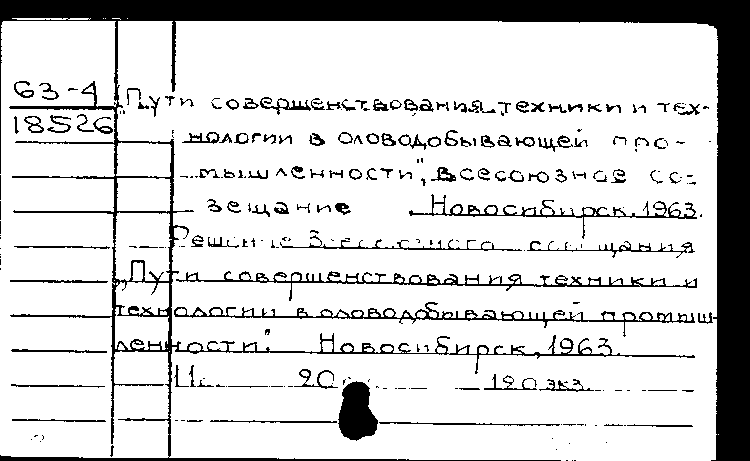 63-4
18526
„Пути совершенствования техники и тех-
нологии в оловодобывающей про-
мышленности", всесоюзное со-
вещание Новосибирск, 1963.
Решение Всесоюзного совещания
„Пути совершенствования техники и
технологии в оловодобывающей промыш-
ленности". Новосибирск, 1963.
20 120 экз.